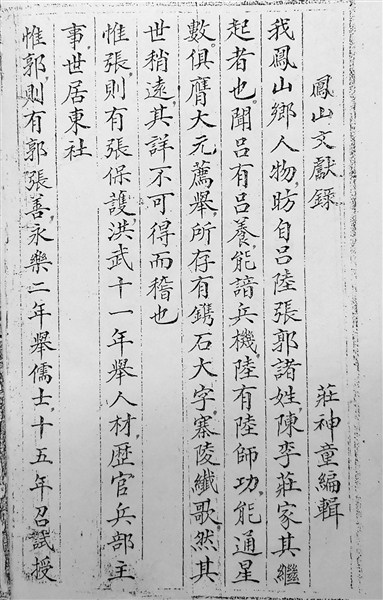 鳳山文獻錄 莊神童編輯
我鳳山鄉人物，昉自呂陸張郭諸姓，陳李莊家其繼
起者也。聞呂有呂養，能諳兵機，陸有陸師功，能通星
數，俱膺大元薦舉，所存有鐫石大字，寨陵纖歌，然其
世稍遠，其詳不可得而稽也
惟張，則有張保護，洪武十一年舉人材，歷官兵部主
事，世居東社
惟郭，則有郭張善，永樂二年舉儒士，十五年召試授